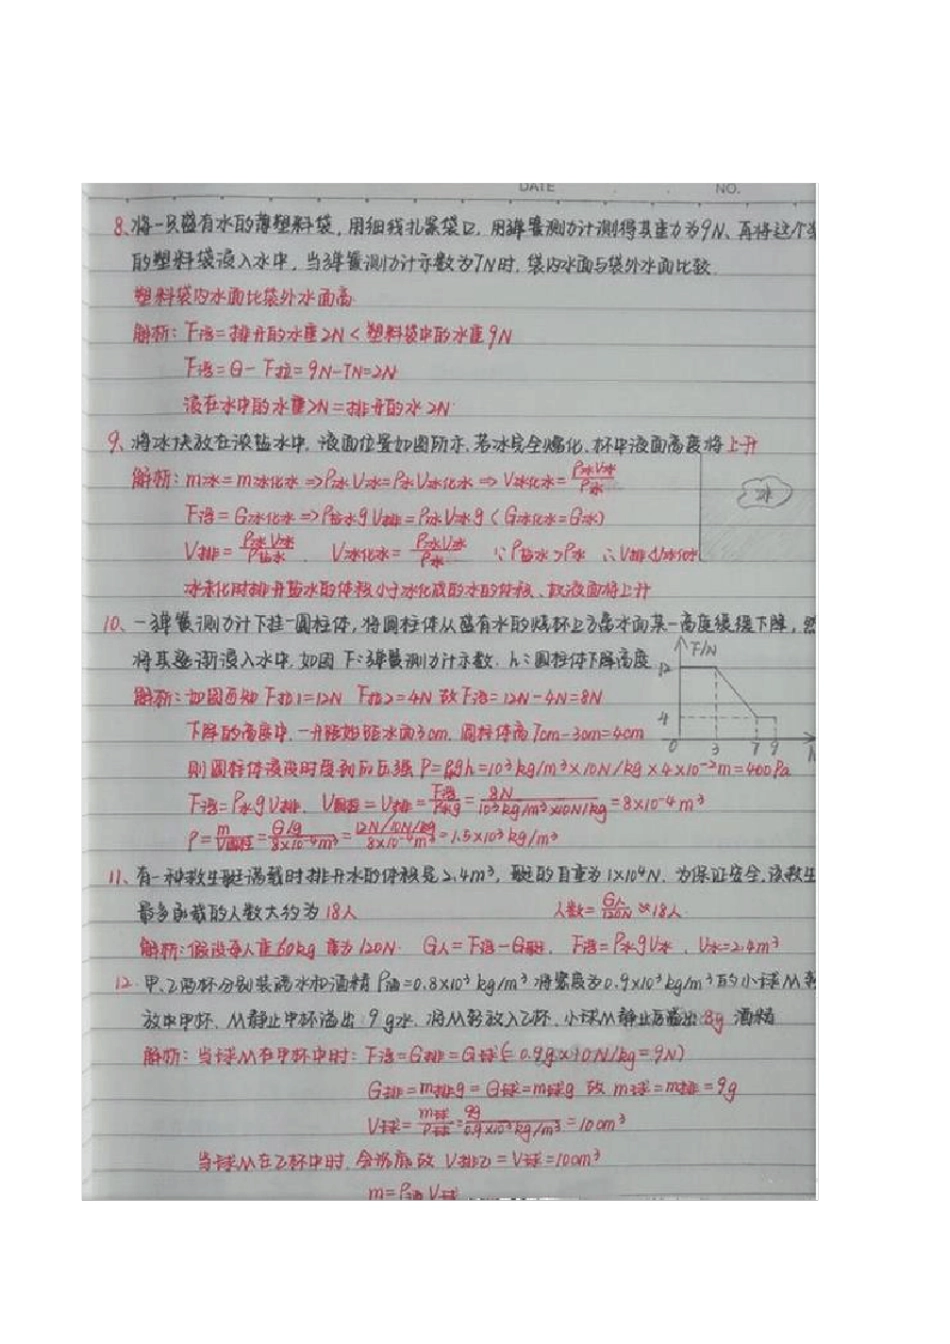 DATE NO.
8、将一只盛有水的薄塑料袋，用细线扎紧袋口，用弹簧测力计测得其重力为9N、再将这个
的塑料袋浸入水中，当弹簧测力计示数为7N时，袋内水面与袋外水面比较
塑料袋内水面比袋外水面高
解析：F浮=排开的水重2N<塑料袋中的水重9N
F浮=G-F拉=9N-7N=2N
浸在水中的水重2N=排开的水2N
9、将冰块放在浓盐水中，液面位置如图所示，若冰完全熔化、杯中液面高度将上升
解析：m冰=m冰化水⇒ρ冰V冰=ρ水V冰化水⇒V冰化水=ρ冰V冰/ρ水
冰
F浮=G冰化水⇒ρ盐水gV排=ρ冰V冰g（G冰化水=G冰）
V排=ρ冰V冰/ρ盐水 V冰化水=ρ冰V冰/ρ水 ∵ρ盐水>ρ水 ∴V排<V冰化水
冰未化时排开盐水的体积小于冰化成的水的体积、故液面将上升
10、一弹簧测力计下挂一圆柱体，将圆柱体从盛有水的烧杯上方离水面某一高度缓缓下降，然
将其逐渐浸入水中，如图 F：弹簧测力计示数．h：圆柱体下降高度
F/N
12
4
0 3 7 9 h
解析：如图可知F拉1=12N F拉2=4N 故F浮=12N-4N=8N
下降的高度中，一开始始距水面3cm，圆柱体高7cm-3cm=4cm
则圆柱体浸没时受到的压强 P=ρgh=10³kg/m³×10N/kg×4×10⁻²m=400Pa
F浮=ρ水gV排、V圆柱=V排=F浮/ρ水g=8N/10³kg/m³×10N/kg=8×10⁻⁴m³
ρ=m/V圆柱=G/g/8×10⁻⁴m³=12N/10N/kg/8×10⁻⁴m³=1.5×10³kg/m³
11、有一种救生艇满载时排开水的体积是2.4m³，艇的自重为1×10⁴N．为保证安全，该救生
最多承载的人数大约为18人 人数=G人/120N≈18人
解析：假设每人重60kg 重为120N． G人=F浮-G艇． F浮=ρ水gV水．V水=2.4m³
12．甲、乙两杯分别装满水和酒精ρ酒=0.8×10³kg/m³将密度为0.9×10³kg/m³的小球M轻
放中甲杯、M静止甲杯溢出9g水，将M轻放入乙杯，小球M静止后溢出8g酒精
解析：当球M在甲杯中时：F浮=G排=G球（=0.9g×10N/kg=9N）
G排=m排g=G球=m球g 故m球=m排=9g
V球=m球/ρ球=9g/0.9×10³kg/m³=10cm³
当球M在乙杯中时，会沉底故 V排乙=V球=10cm³
m=ρ酒V球